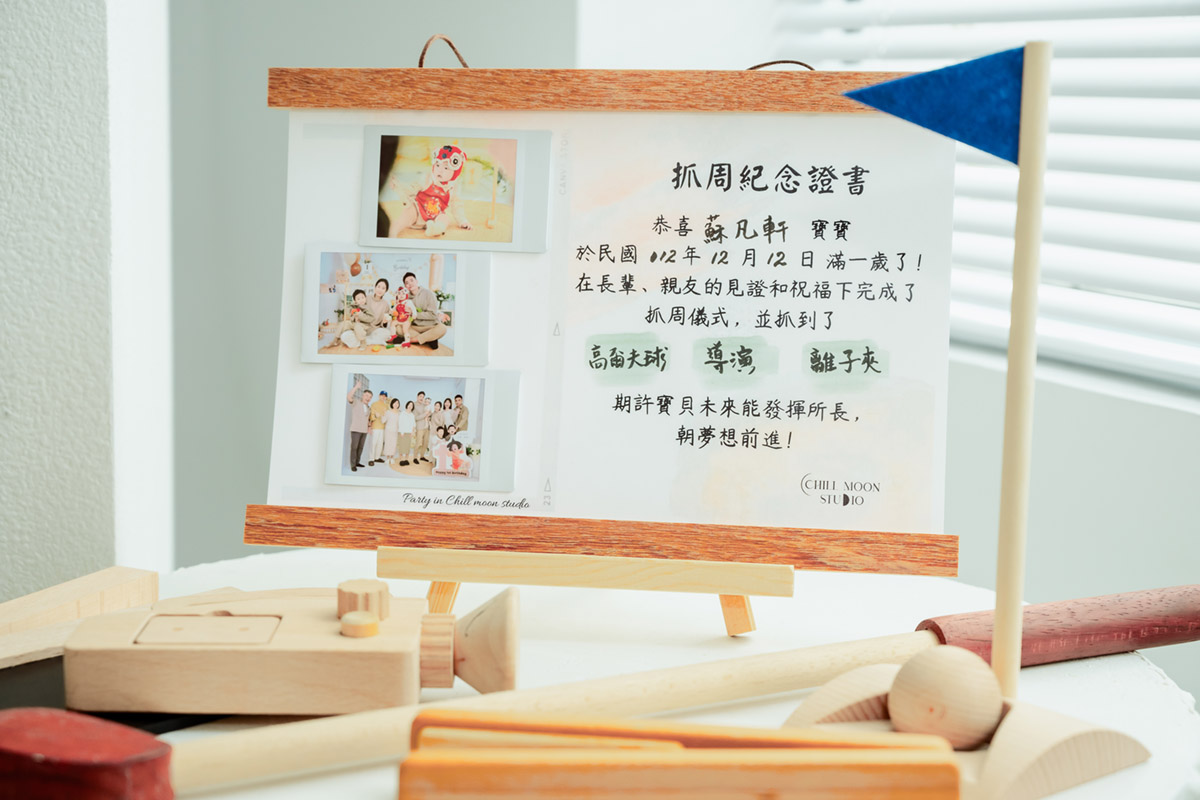 抓周紀念證書
恭喜 蘇凡軒 寶寶
於民國 112年 12 月 12 日 滿一歲了!
在長輩、親友的見證和祝福下完成了
抓周儀式,並抓到了
高爾夫球 導演 離子夾
期許寶貝未來能發揮所長,
朝夢想前進!
CHILL MOON
STUDIO
Party in Chill moon studio
23